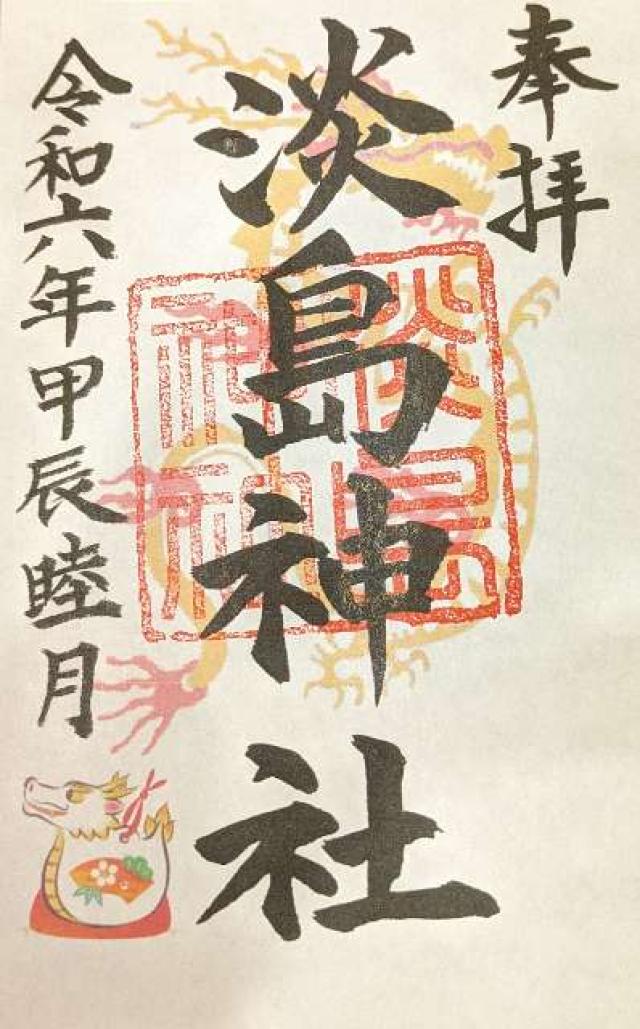 奉拝
淡島神社
淡島神社
令和六年甲辰睦月